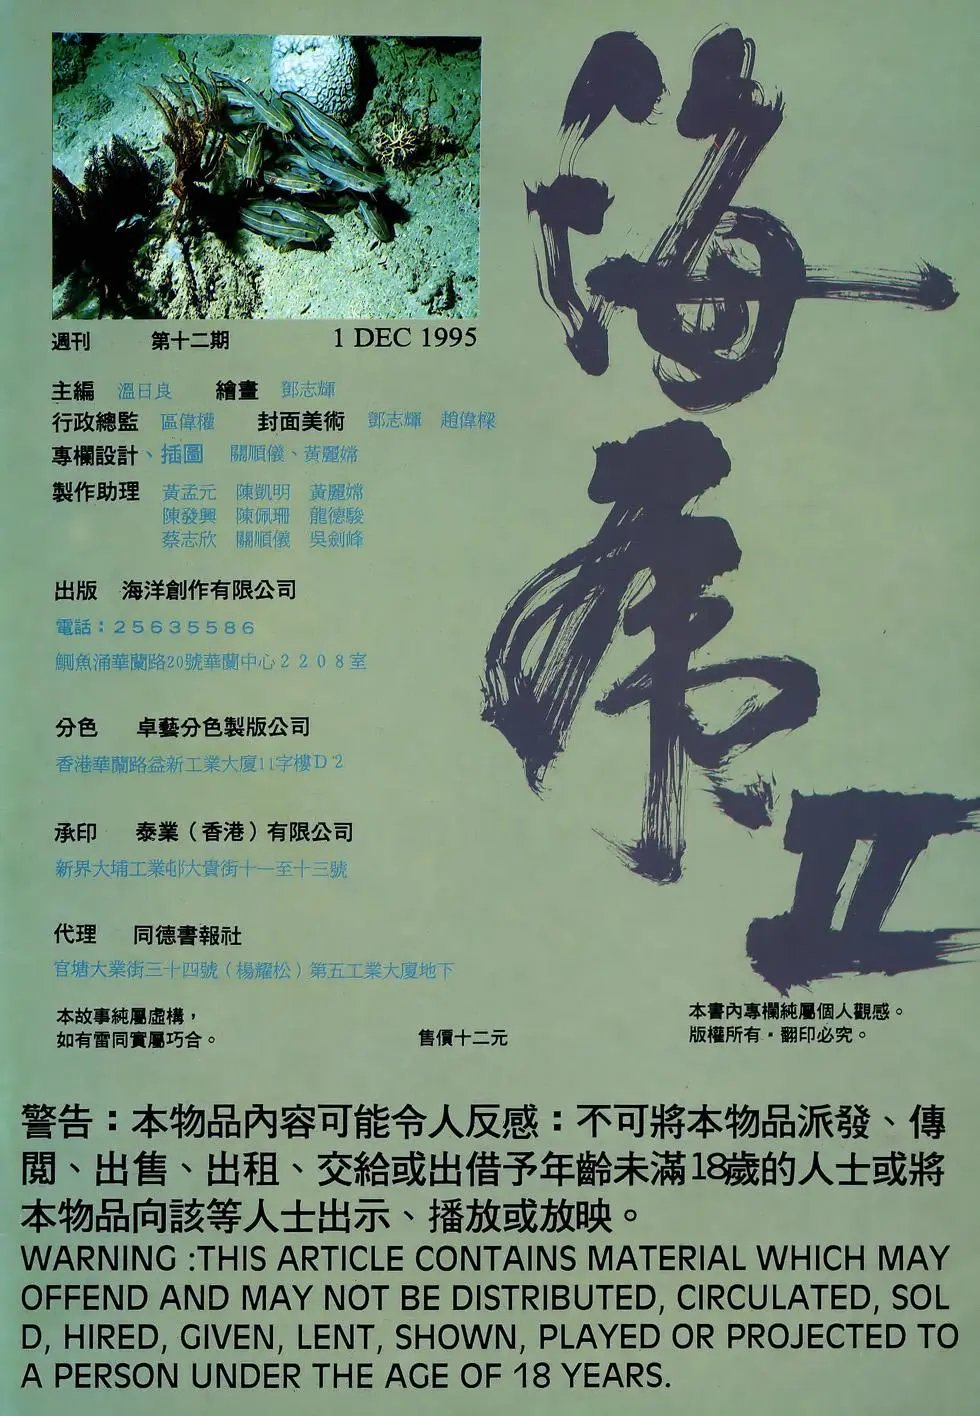 海虎II
週刊 第十二期 1 DEC 1995
主編 溫日良 繪畫 鄧志輝
行政總監 區偉權 封面美術 鄧志輝 趙偉樑
專欄設計、插圖 關順儀、黃麗嫦
製作助理 黃孟元 陳凱明 黃麗嫦
陳發興 陳佩珊 龍德駿
蔡志欣 關順儀 吳劍峰
出版 海洋創作有限公司
電話：25635586
鰂魚涌華蘭路20號華蘭中心2208室
分色 卓藝分色製版公司
香港華蘭路益新工業大廈11字樓D2
承印 泰業（香港）有限公司
新界大埔工業邨大貴街十一至十三號
代理 同德書報社
官塘大業街三十四號（楊耀松）第五工業大廈地下
本故事純屬虛構，
如有雷同實屬巧合。
售價十二元
本書內專欄純屬個人觀感。
版權所有·翻印必究。
警告：本物品內容可能令人反感：不可將本物品派發、傳
閱、出售、出租、交給或出借予年齡未滿18歲的人士或將
本物品向該等人士出示、播放或放映。
WARNING :THIS ARTICLE CONTAINS MATERIAL WHICH MAY
OFFEND AND MAY NOT BE DISTRIBUTED, CIRCULATED, SOL
D, HIRED, GIVEN, LENT, SHOWN, PLAYED OR PROJECTED TO
A PERSON UNDER THE AGE OF 18 YEARS.